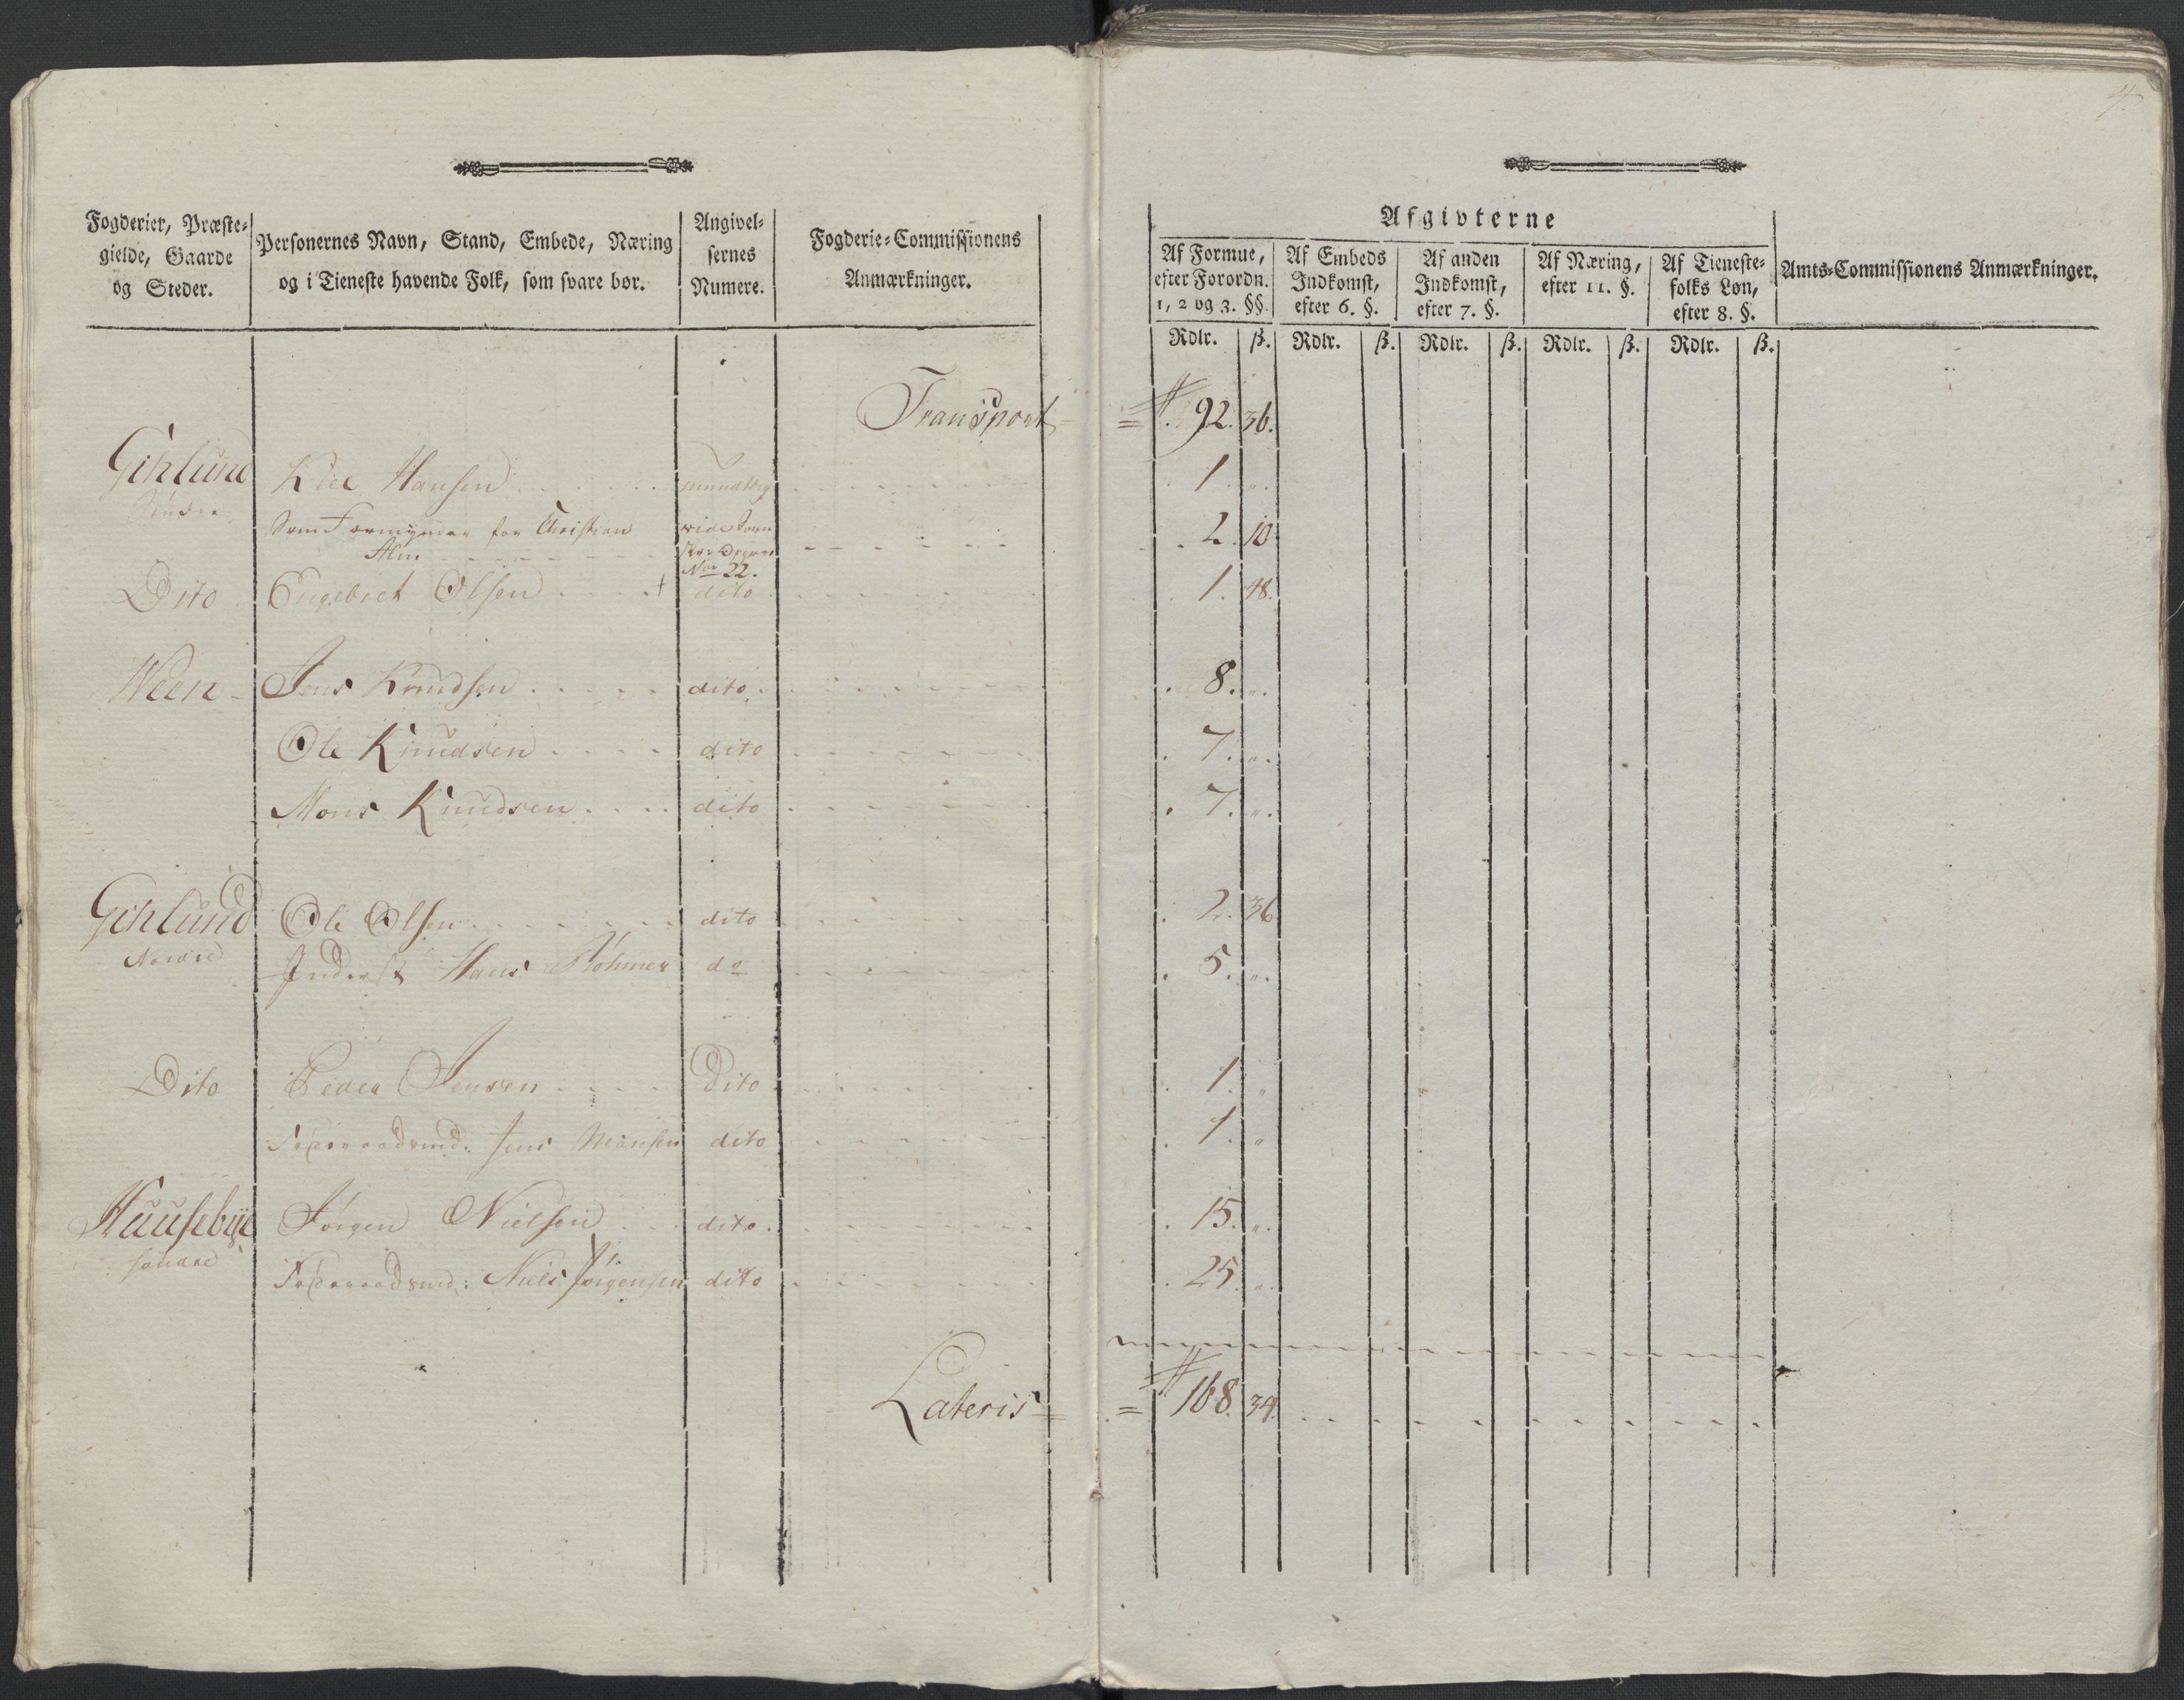 4.
Fogderier, Præste-
gielde, Gaarde
og Steder.
Personernes Navn, Stand, Embede, Næring
og i Tieneste havende Folk, som svare bør.
Angivel-
sernes
Numere.
Fogderie-Commissionens
Anmærkninger.
Afgivterne
Af Formue,
efter Forordn.
1, 2 og 3. §§.
Af Embeds
Indkomst,
efter 6. §.
Af anden
Indkomst,
efter 7. §.
Af Næring,
efter 11. §.
Af Tieneste-
folks Løn,
efter 8. §.
Amts-Commissionens Anmærkninger.
Rdlr. ß. Rdlr. ß. Rdlr. ß. Rdlr. ß. Rdlr. ß.
Transport = 92. 36.
Gihlund Hansen mundtlig 1. „
Søndre
Som Formynder for Christian 2. 10
Alm
No 22.
Dito Engebret Olsen dito 1. 48.
Ween Jens Knudsen dito 8. „
Ole Knudsen dito 7. „
Mons Knudsen dito 7. „
Gihlund Ole Olsen dito 2. 36
Nordre Inderst Hans Böhmer do 5. „
Dito Peder Jensen Dito 1. „
Føderaadsmd: Jens Monsen dito 1. „
Huusebye Jørgen Nielsen dito 15. „
søndre
Føderaadsmd: Niels Jørgensen dito 25. „
Lateris = 168. 34.